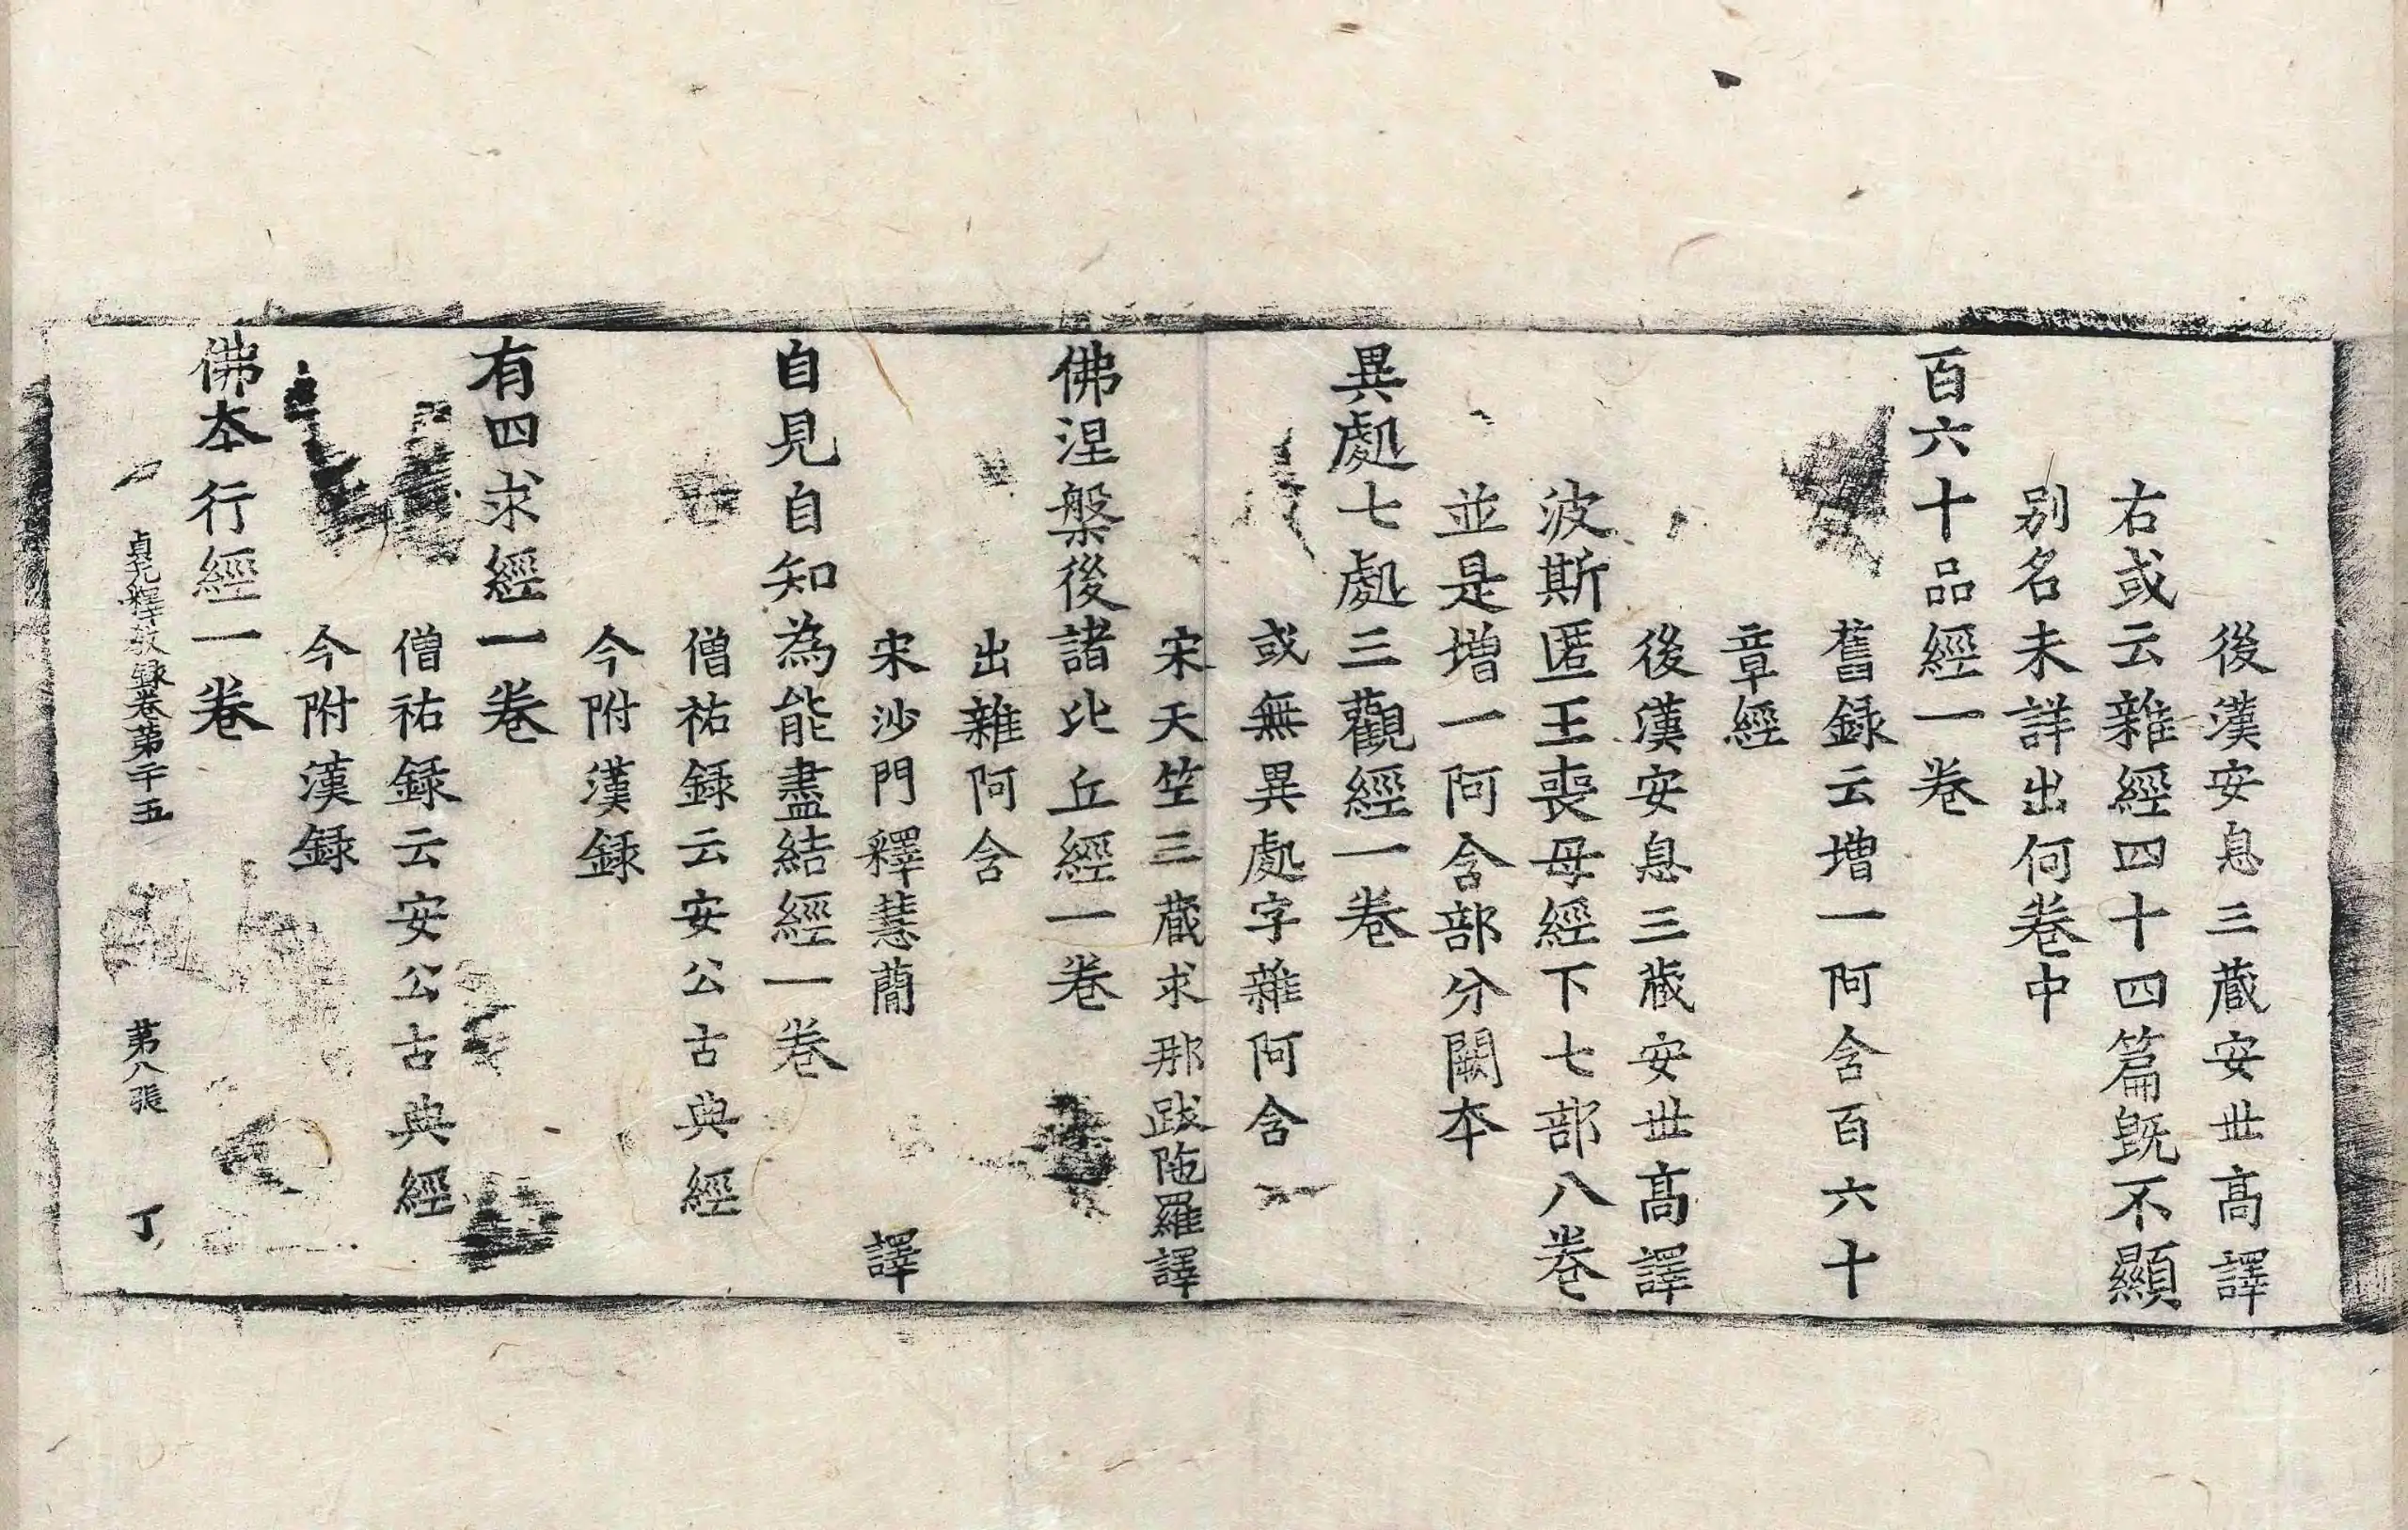 後漢安息三藏安世高譯
右或云雜經四十四篇旣不顯
别名未詳出何卷中
百六十品經一卷
舊録云增一阿含百六十
章經
後漢安息三藏安世高譯
波斯匿王喪母經下七部八卷
並是增一阿含部分闕本
異處七處三觀經一卷
或無異處字雜阿含
宋天竺三藏求那跋陁羅譯
佛涅槃後諸比丘經一卷
出雜阿含
宋沙門釋慧蕳譯
自見自知為能盡結經一卷
僧祐録云安公古典經
今附漢録
有四求經一卷
僧祐録云安公古典經
今附漢録
佛本行經一卷
貞元釋敎録卷第二十五 第八張 丁